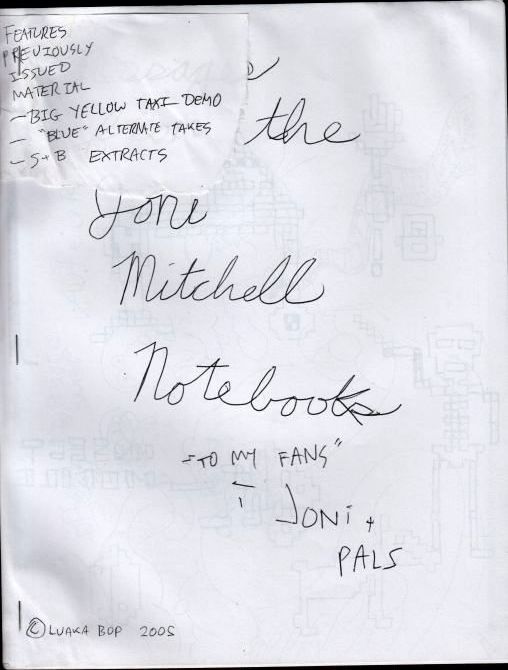 FEATURES
PREVIOUSLY
ISSUED
MATERIAL
- BIG YELLOW TAXI DEMO
- "BLUE" ALTERNATE TAKES
- S+B EXTRACTS
the
Joni
Mitchell
Notebooks
"TO MY FANS"
JONi +
PALS
© LUAKA BOP 2005